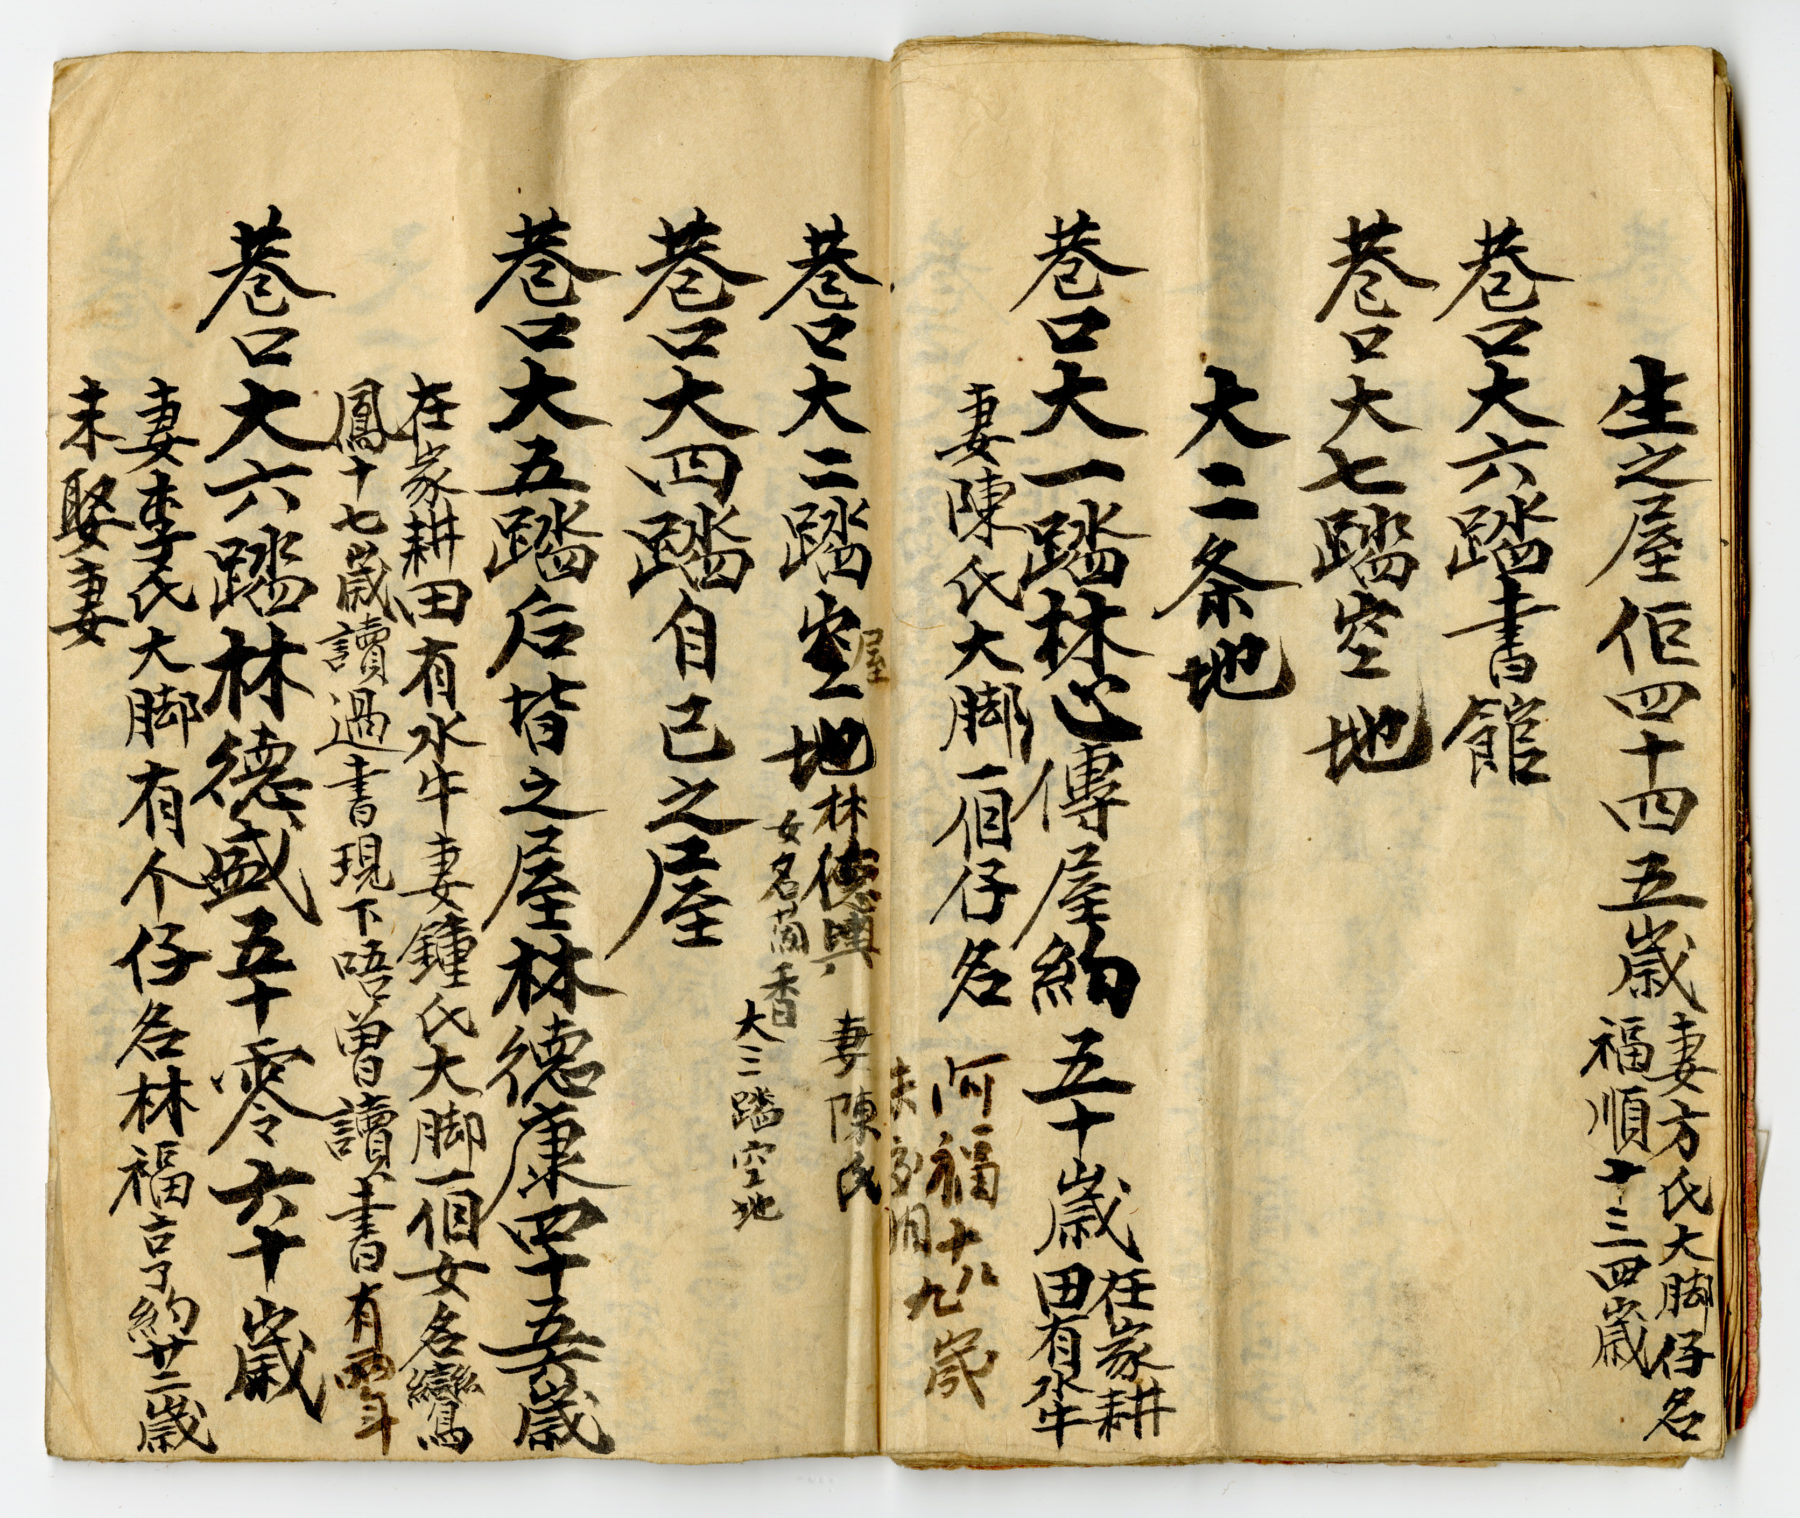 生之屋佢四十四五歳妻方氏大脚仔名
福順十三四歳
巷口大六踏書館
巷口大七踏空地
大二条地
巷口大一踏林心傳屋約五十歳在家耕
田有水牛
妻陳氏大脚一個仔名阿福十八
九歳
巷口大二踏空地
屋
林德興 妻陳氏
女名蘭香
大三踏空地
巷口大四踏自己之屋
巷口大五踏后背之屋林德康四十五六歳
在家耕田有水牛妻鍾氏大脚一個女名鸞
鳳十七歳讀過書現下唔曽讀書有兩年
巷口大六踏林德盛五十零六十歳
妻李氏大脚有个仔名林福亨約廿二歳
未娶妻